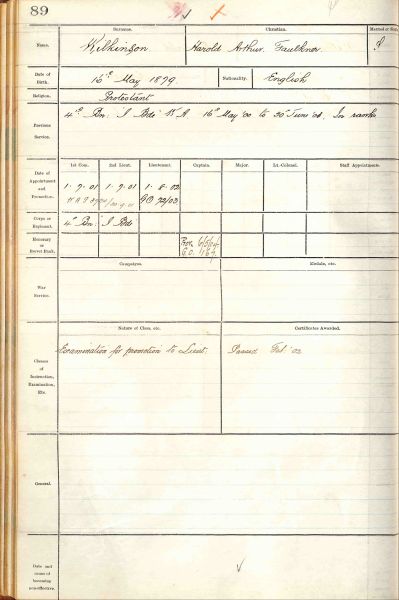 89
Surname. Christian. Married or Single.
Name. Wilkinson Harold Arthur Faulkner S
Date of Birth. 16th May 1879 Nationality. English
Religion. Protestant
Previous Service. 4th Bn: I Bde 16th May '00 to 30th June '01, In ranks
1st Com. 2nd Lieut. Lieutenant. Captain. Major. Lt.-Colonel. Staff Appointments.
Date of Appointment and Promotion. 1.9.01 1.9.01 1.8.02
GO 72/02
Corps or Regiment. 4th Bn: I Bde
Honorary or Brevet Rank.
Campaigns. Medals, etc.
War Service.
Nature of Class, etc. Certificates Awarded.
Classes of Instruction, Examination, Etc. Examination for promotion to Lieut. Passed Feb. '02
General.
Date and cause of becoming non-effective.